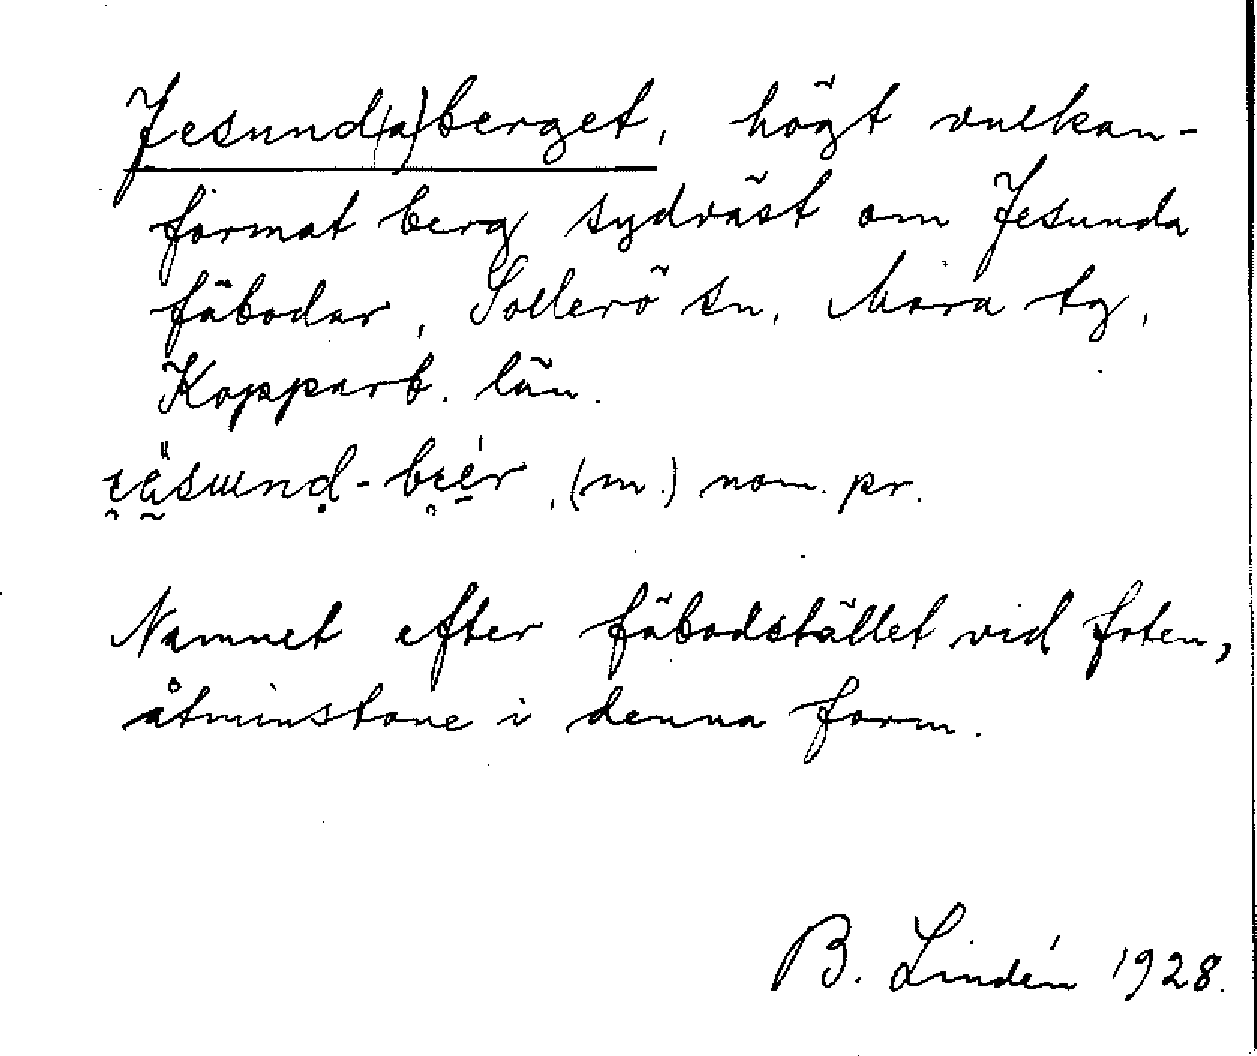 Jesund(a)berget, högt vulkan-
format berg sydväst om Jesunda
fäbodar, Sollerö sn, Mora tg,
Kopparb. län.
(m.) nom. pr.
Namnet efter fäbodstället vid foten,
åtminstone i denna form.
B. Lindén 1928.